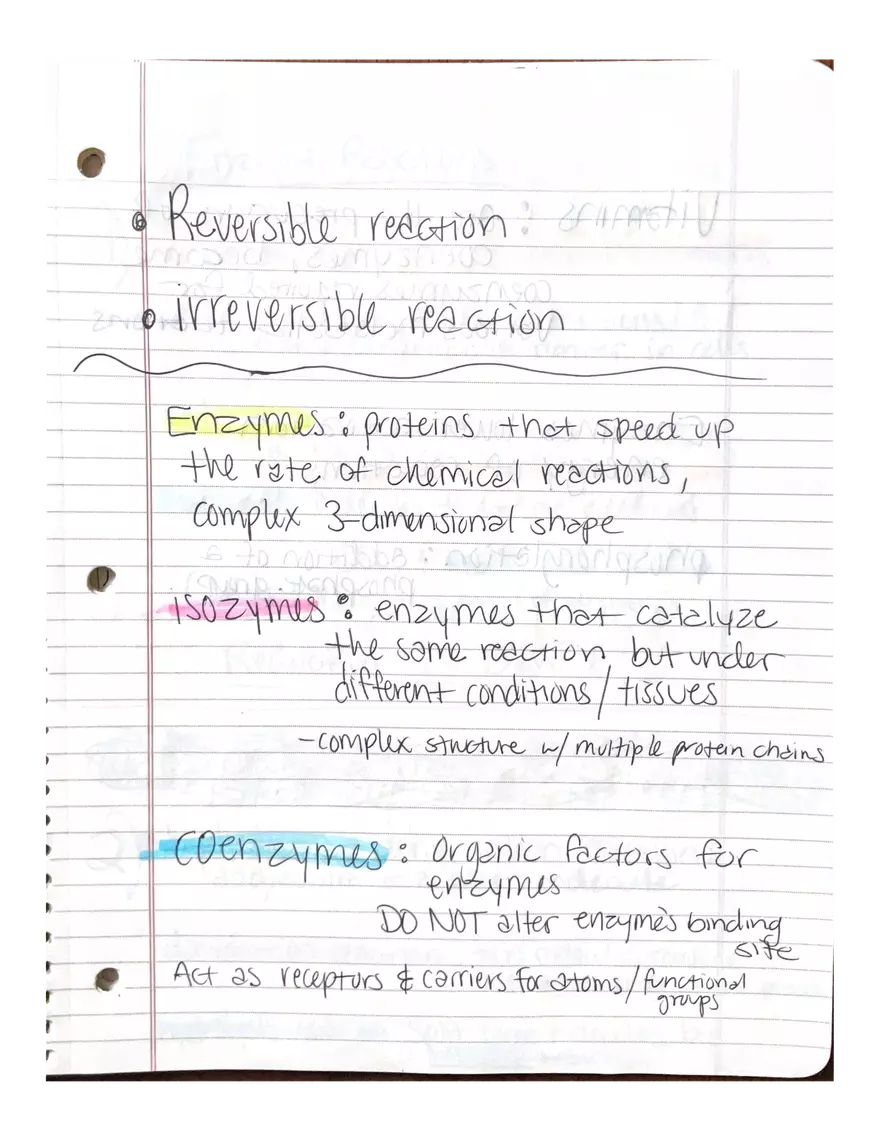 Reversible reaction:
irreversible reaction
Enzymes: proteins that speed up
the rate of chemical reactions,
complex 3-dimensional shape
isozymes: enzymes that catalyze
the same reaction, but under
different conditions/tissues
-complex structure w/ multiple protein chains
coenzymes: organic factors for
enzymes
DO NOT alter enzyme's binding
site
Act as receptors & carriers for atoms/functional
groups